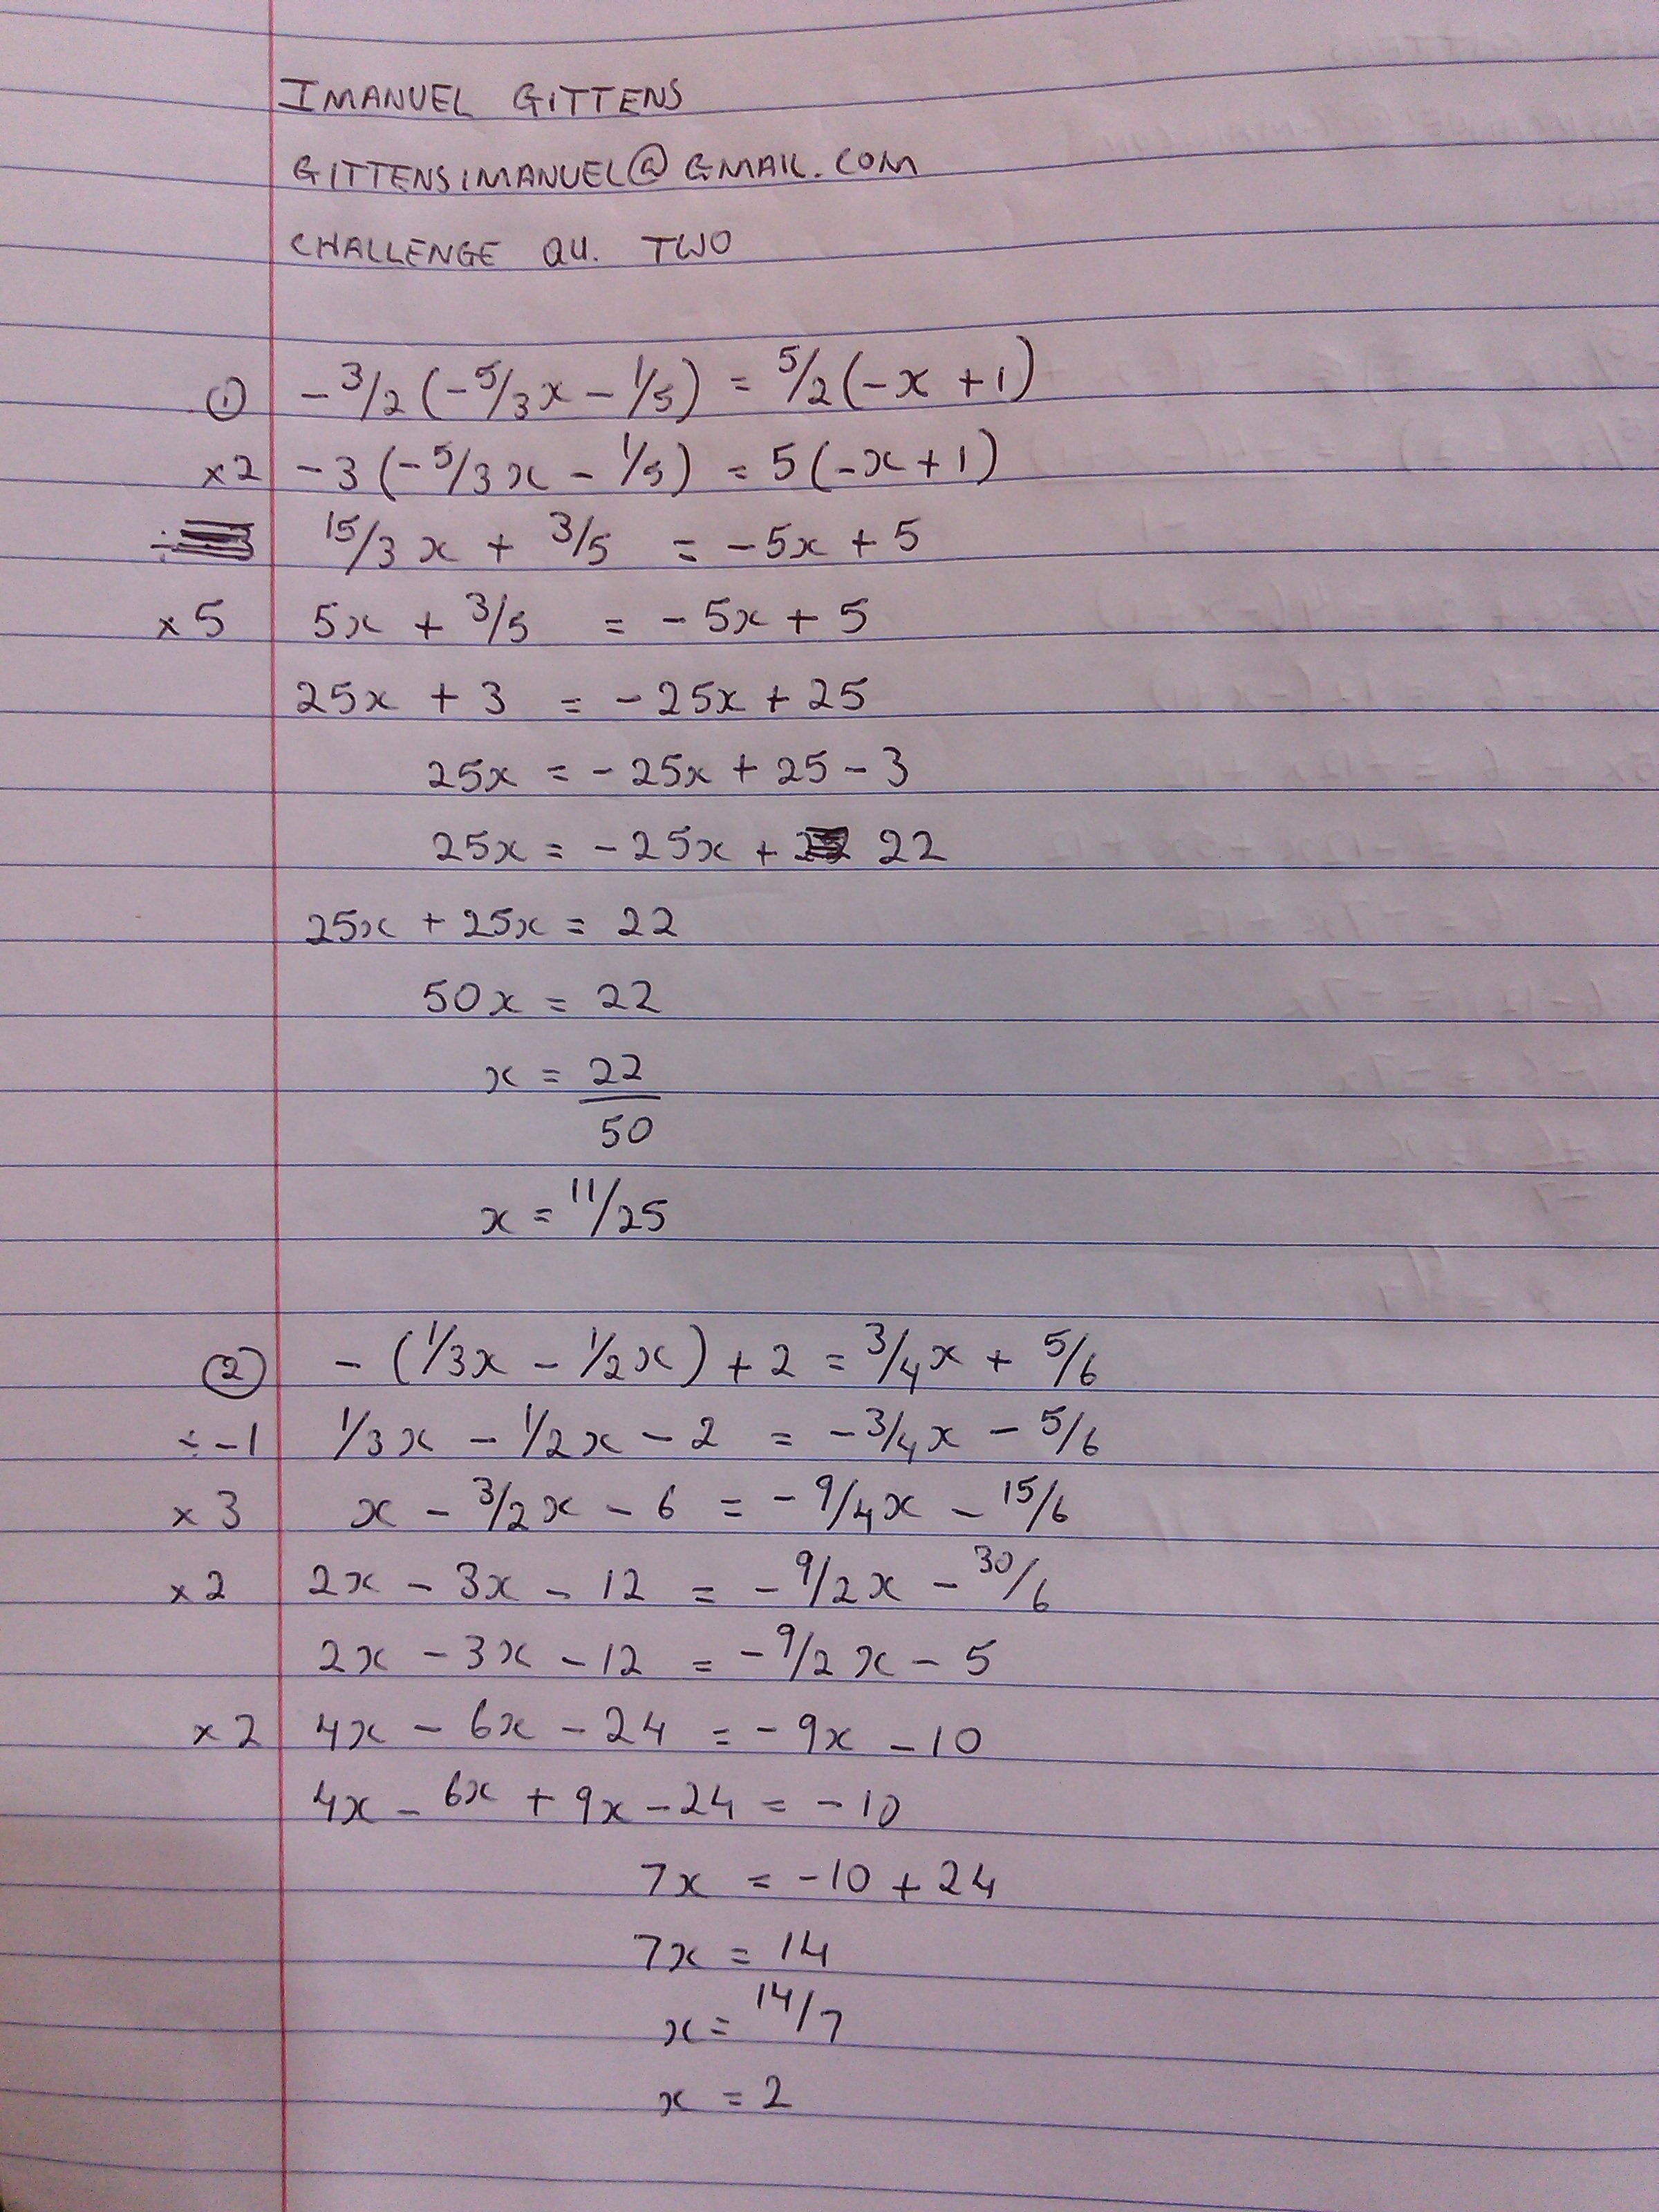 IMANUEL GITTENS
GITTENSIMANUEL@GMAIL.COM
CHALLENGE QU. TWO
① -3/2(-5/3x - 1/5) = 5/2(-x + 1)
×2 -3(-5/3x - 1/5) = 5(-x + 1)
÷ 15/3x + 3/5 = -5x + 5
×5 5x + 3/5 = -5x + 5
25x + 3 = -25x + 25
25x = -25x + 25 - 3
25x = -25x + 22
25x + 25x = 22
50x = 22
x = 22/50
x = 11/25
② -(1/3x - 1/2x) + 2 = 3/4x + 5/6
÷-1 1/3x - 1/2x - 2 = -3/4x - 5/6
×3 x - 3/2x - 6 = -9/4x - 15/6
×2 2x - 3x - 12 = -9/2x - 30/6
2x - 3x - 12 = -9/2x - 5
×2 4x - 6x - 24 = -9x - 10
4x - 6x + 9x - 24 = -10
7x = -10 + 24
7x = 14
x = 14/7
x = 2